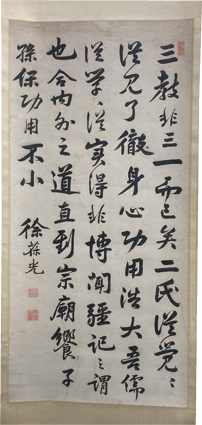 三教非三一而已矣二氏從覺〻
從見了徹身心功用浩大吾儒
從學〻從實得非博聞疆記之謂
也合內外之道直到宗廟饗子
孫保功用不小
徐葆光